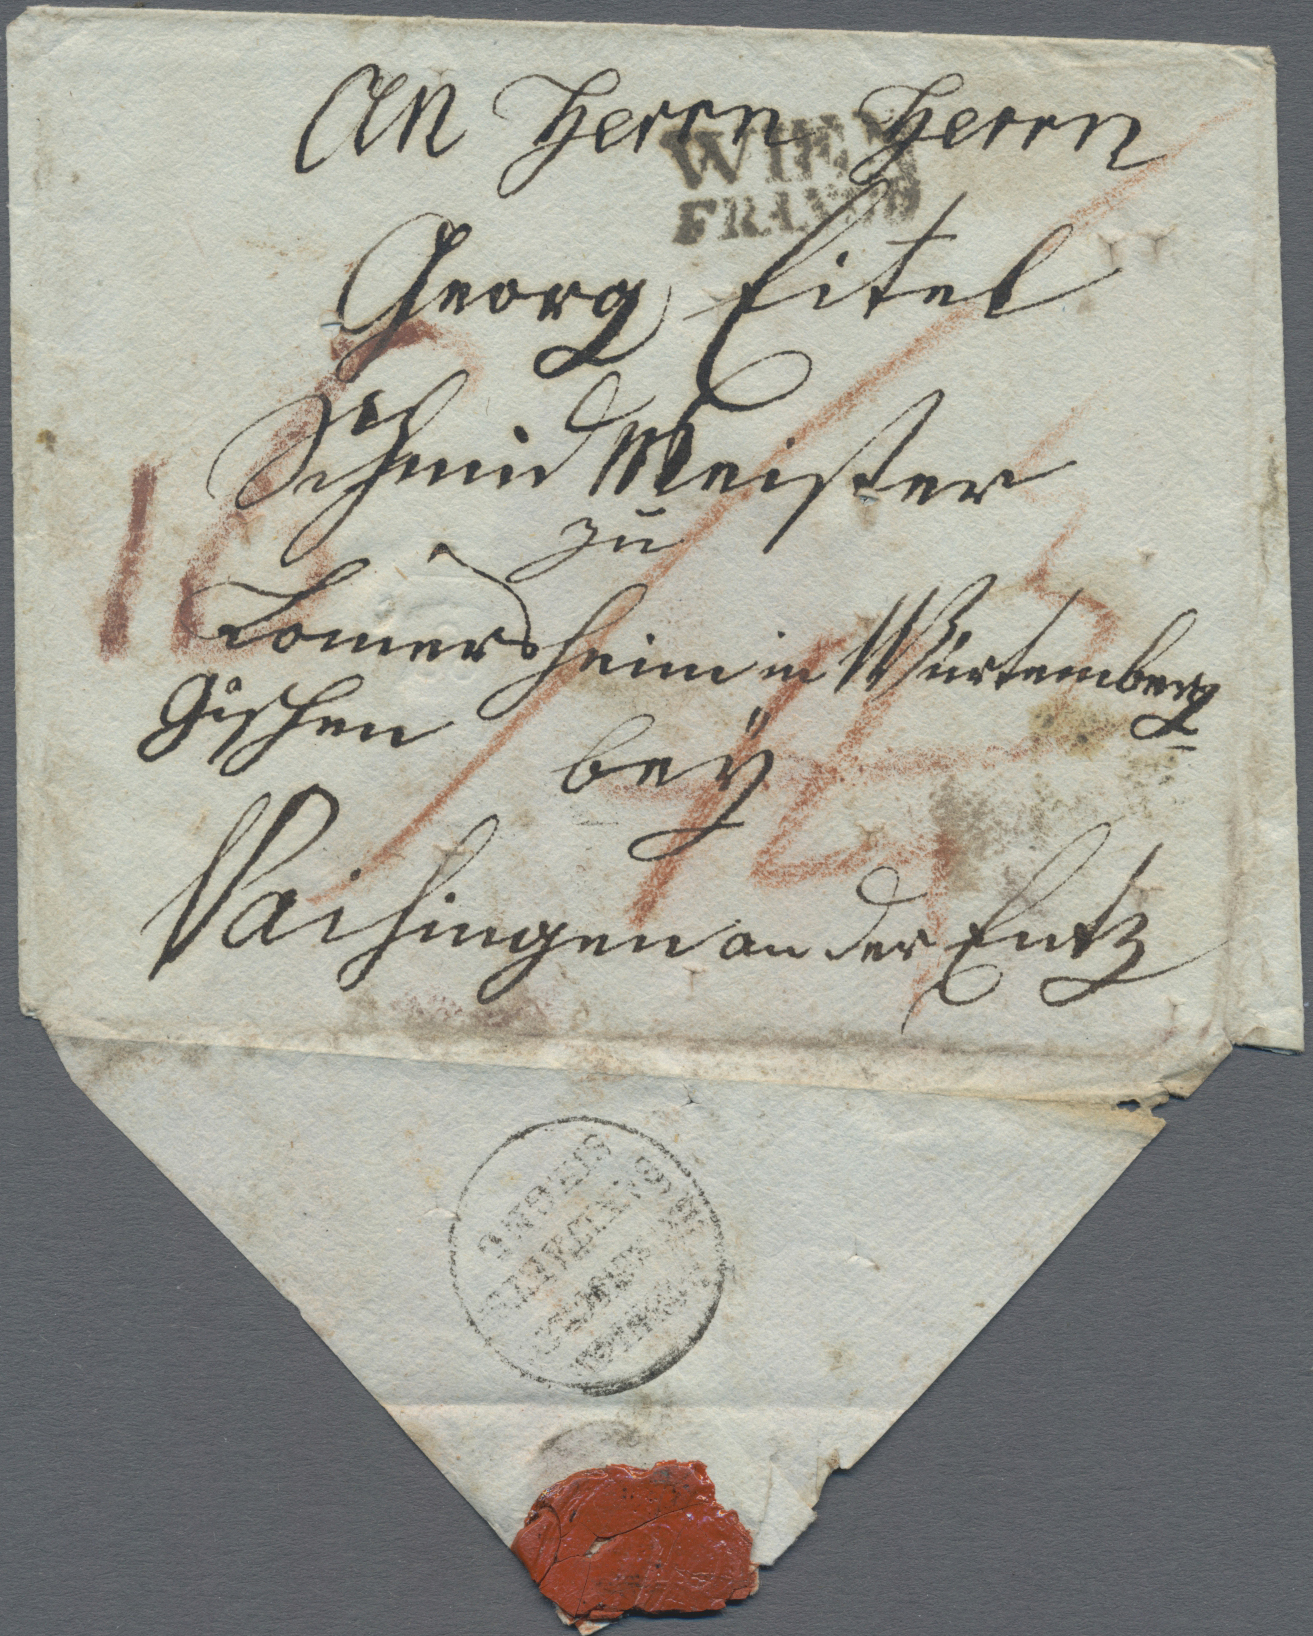 An Herrn Herrn
WIEN
FRANCO
Georg Eitel
Schmid Meister
zu
Lomersheim in Würtemberg
gischen
beÿ
Vaihingen an der Entz